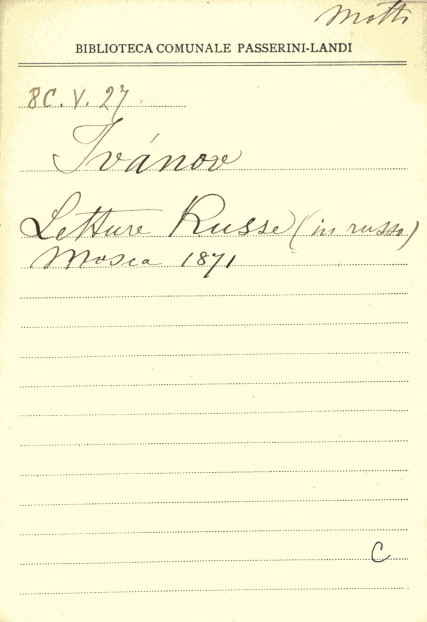 Motti
BIBLIOTECA COMUNALE PASSERINI-LANDI
8C. V. 27
Ivánov
Letture Russe (in russo)
Mosca 1871
C